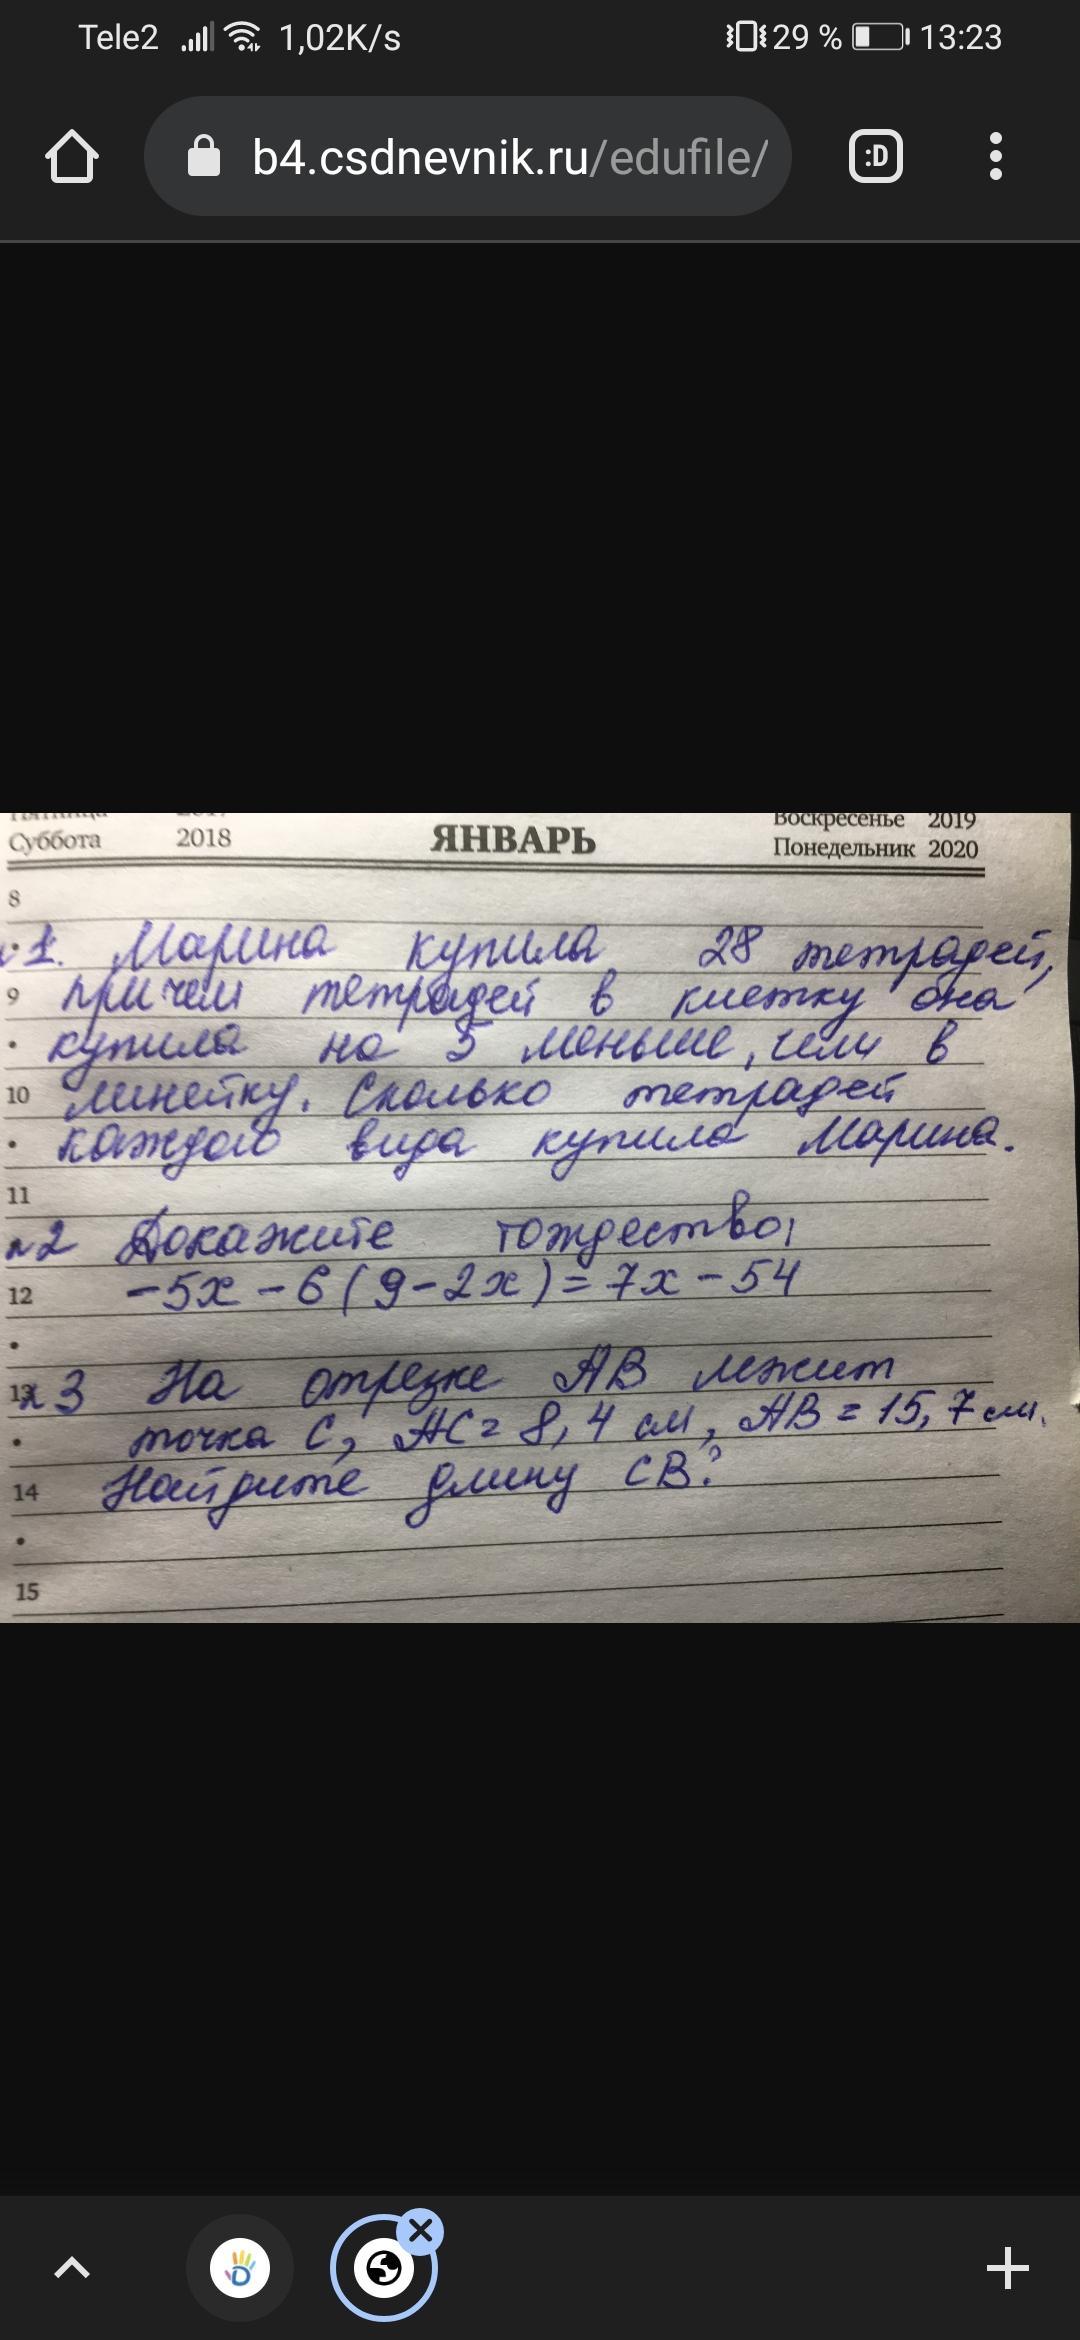 Tele2 1,02K/s 29 % 13:23
b4.csdnevnik.ru/edufile/
:D
Суббота 2018 ЯНВАРЬ Воскресенье 2019
Понедельник 2020
8
1. Марина купила 28 тетрадей,
9 причем тетрадей в клетку она
купила на 5 меньше, чем в
10 линейку. Сколько тетрадей
каждого вида купила Марина.
11
№2 Докажите тождество:
12 -5x - 6(9-2x) = 7x - 54
13 №3 На отрезке АВ лежит
точка С, АС = 8,4 см, АВ = 15,7 см.
14 Найдите длину СВ?
15